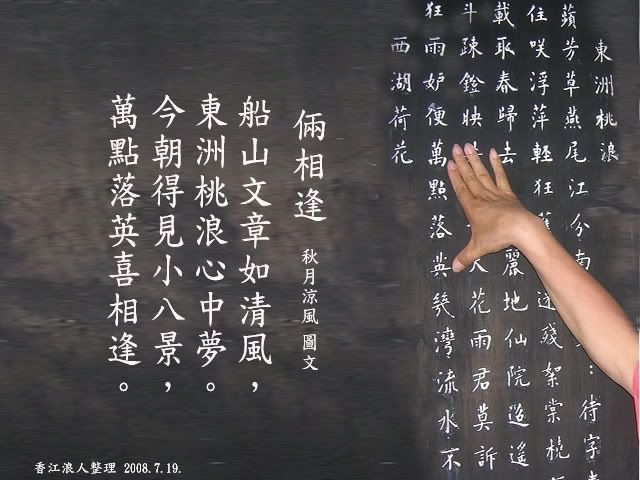 東洲桃浪
蘋芳草燕尾江分南 待字
住咲浮萍輕狂 殘絮棠梳
載取春歸去 麗地仙院迢遙
斗疎鐙映 花雨君莫訴
狂雨妒便萬點落英幾灣流水不
西湖荷花
倆相逢 秋月涼風 圖文
船山文章如清風，
東洲桃浪心中夢。
今朝得見小八景，
萬點落英喜相逢。
香江浪人整理 2008.7.19.